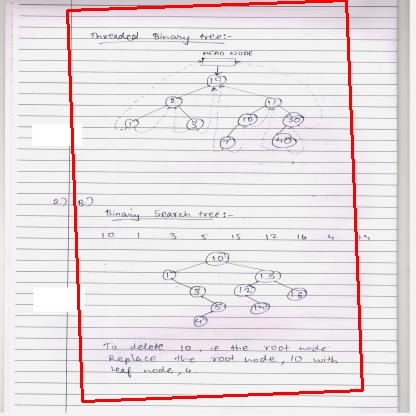 Threaded Binary tree:-
HEAD NODE
2
1 3
30
40
2) B)
Binary Search tree:-
10 1 3 5 15 12 16 4 14
10
1 15
3 12 16
5 14
4
To delete 10, ie the root node
Replace the root node, 10 with
leaf node, 4.